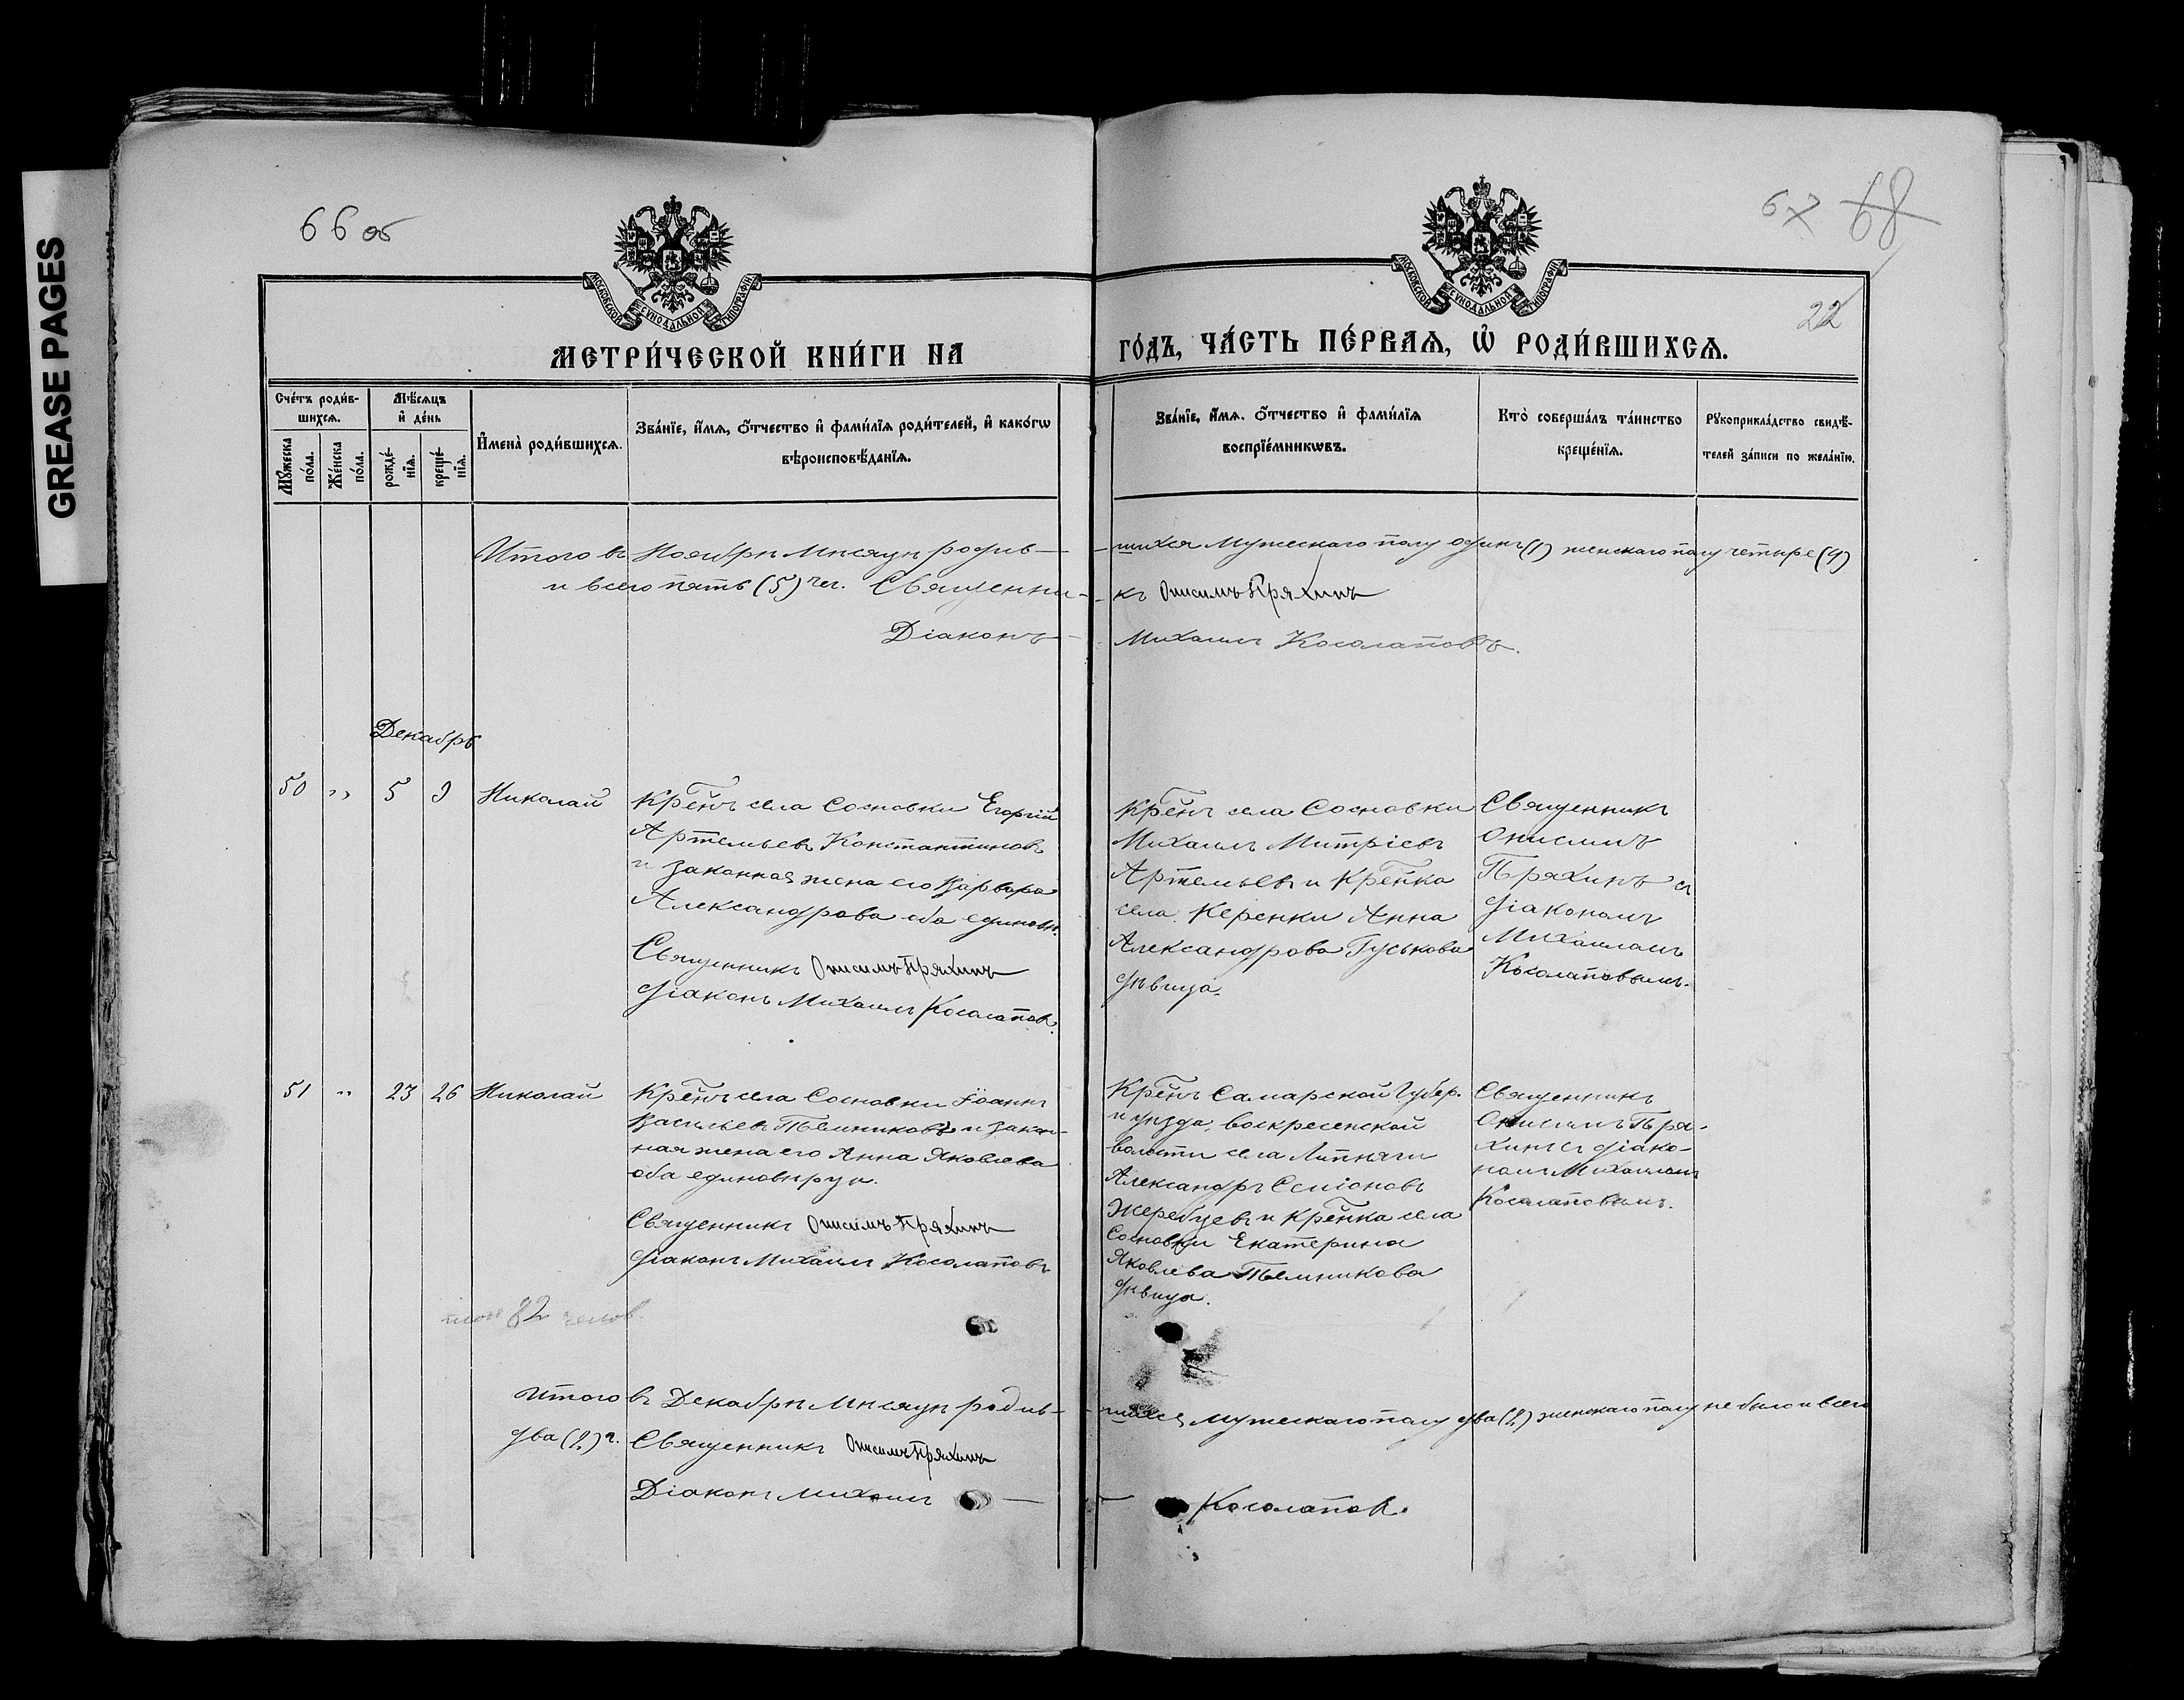 GREASE PAGES
66 об
67 68
22
МОСКОВСКОЙ СѴНОДАЛЬНОЙ ТИПОГРАФІИ
МОСКОВСКОЙ СѴНОДАЛЬНОЙ ТИПОГРАФІИ
МЕТРИ́ЧЕСКОЙ КНИ́ГИ НА
ГО́ДЪ, ЧА́СТЬ ПЕ́РВАЯ, Ѡ҆ РОДИ́ВШИХСЯ.
Сче́тъ роди́в-
шихся.
Мꙋжеска по́ла.
Же́нска по́ла.
Мѣ́сяцъ
и҆ де́нь
рожде́-
нїя.
креще́-
нїя.
И҆мена̀ роди́вшихся.
Зва́нїе, и҆́мя, о҆́тчество и҆ фами́лїя роди́телей, и҆ како́гѡ
вѣроисповѣ́данїя.
Зва́нїе, и҆́мя, о҆́тчество и҆ фами́лїя
воспрїе́мникѡвъ.
Кто̀ соверша́лъ та́инство
креще́нїя.
Рꙋкоприкла́дство свидѣ́-
телей за́писи по жела́нїю.
Итого въ Ноябрѣ мѣсяцѣ родив-
-шихся мужескаго полу одинъ (1) женскаго полу четыре (4)
и всего пять (5) чел. Священни-
-къ Онисимъ Пряхинъ
Діаконъ
Михаилъ Косолаповъ.
Декабрь
50 " 5 9 Николай
Крест̃нъ села Сосновки Егорій
Артемьевъ Константиновъ
и законная жена его Варвара
Александрова оба единовѣр.
Священникъ Онисимъ Пряхинъ
діаконъ Михаилъ Косолаповъ.
Крест̃нъ села Сосновки
Михаилъ Митріевъ
Артемьевъ и Крест̃нка
села Керенки Анна
Александрова Гуськова
дѣвица.
Священникъ
Онисимъ
Пряхинъ съ
діакономъ
Михаиломъ
Косолаповымъ.
51 " 23 26 Николай
Крест̃нъ села Сосновки Іоаннъ
Васильевъ Темниковъ и закон-
ная жена его Анна Яковлева
оба единовѣрцы.
Священникъ Онисимъ Пряхинъ
діаконъ Михаилъ Косолаповъ
Крест̃нъ Самарской Губер.
и уѣзда, воскресенской
волости села Липяги
Александръ Семіоновъ
Жеребцевъ и Крест̃нка села
Сосновки Екатерина
Яковлева Темникова
дѣвица.
Священникъ
Онисимъ Пря-
хинъ съ діако-
номъ Михаиломъ
Косолаповымъ.
82 челов.
Итого въ Декабрѣ мѣсяцѣ родив-
-шихся мужескаго полу два (2) женскаго полу не было и всего
два (2) ч. Священникъ Онисимъ Пряхинъ
Діаконъ Михаилъ
Косолаповъ.